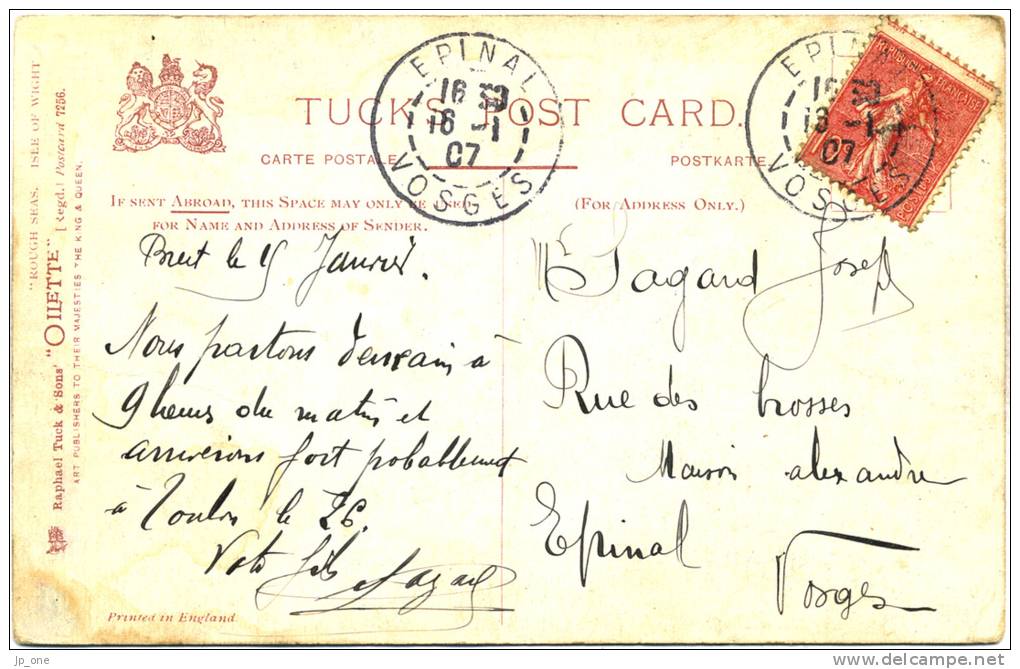 TUCK'S POST CARD.
CARTE POSTALE
POSTKARTE
IF SENT ABROAD, THIS SPACE MAY ONLY BE USED
FOR NAME AND ADDRESS OF SENDER.
(FOR ADDRESS ONLY.)
EPINAL
16 30
16 -1
07
VOSGES
EPINAL
16 30
16 -1
07
VOSGES
REPUBLIQUE FRANÇAISE
POSTES
"ROUGH SEAS. ISLE OF WIGHT
Raphael Tuck & Sons' "OILETTE" [Regd.] Postcard 7256.
ART PUBLISHERS TO THEIR MAJESTIES THE KING & QUEEN.
Brest le 15 Janvier.
Nous partons demain à
9 heures du matin et
arriverons fort probablement
à Toulon le 26.
Votre fils
Printed in England.
Joseph
Rue des brosses
Maison alexandre
Epinal
Vosges
jp_one
delcampe.net